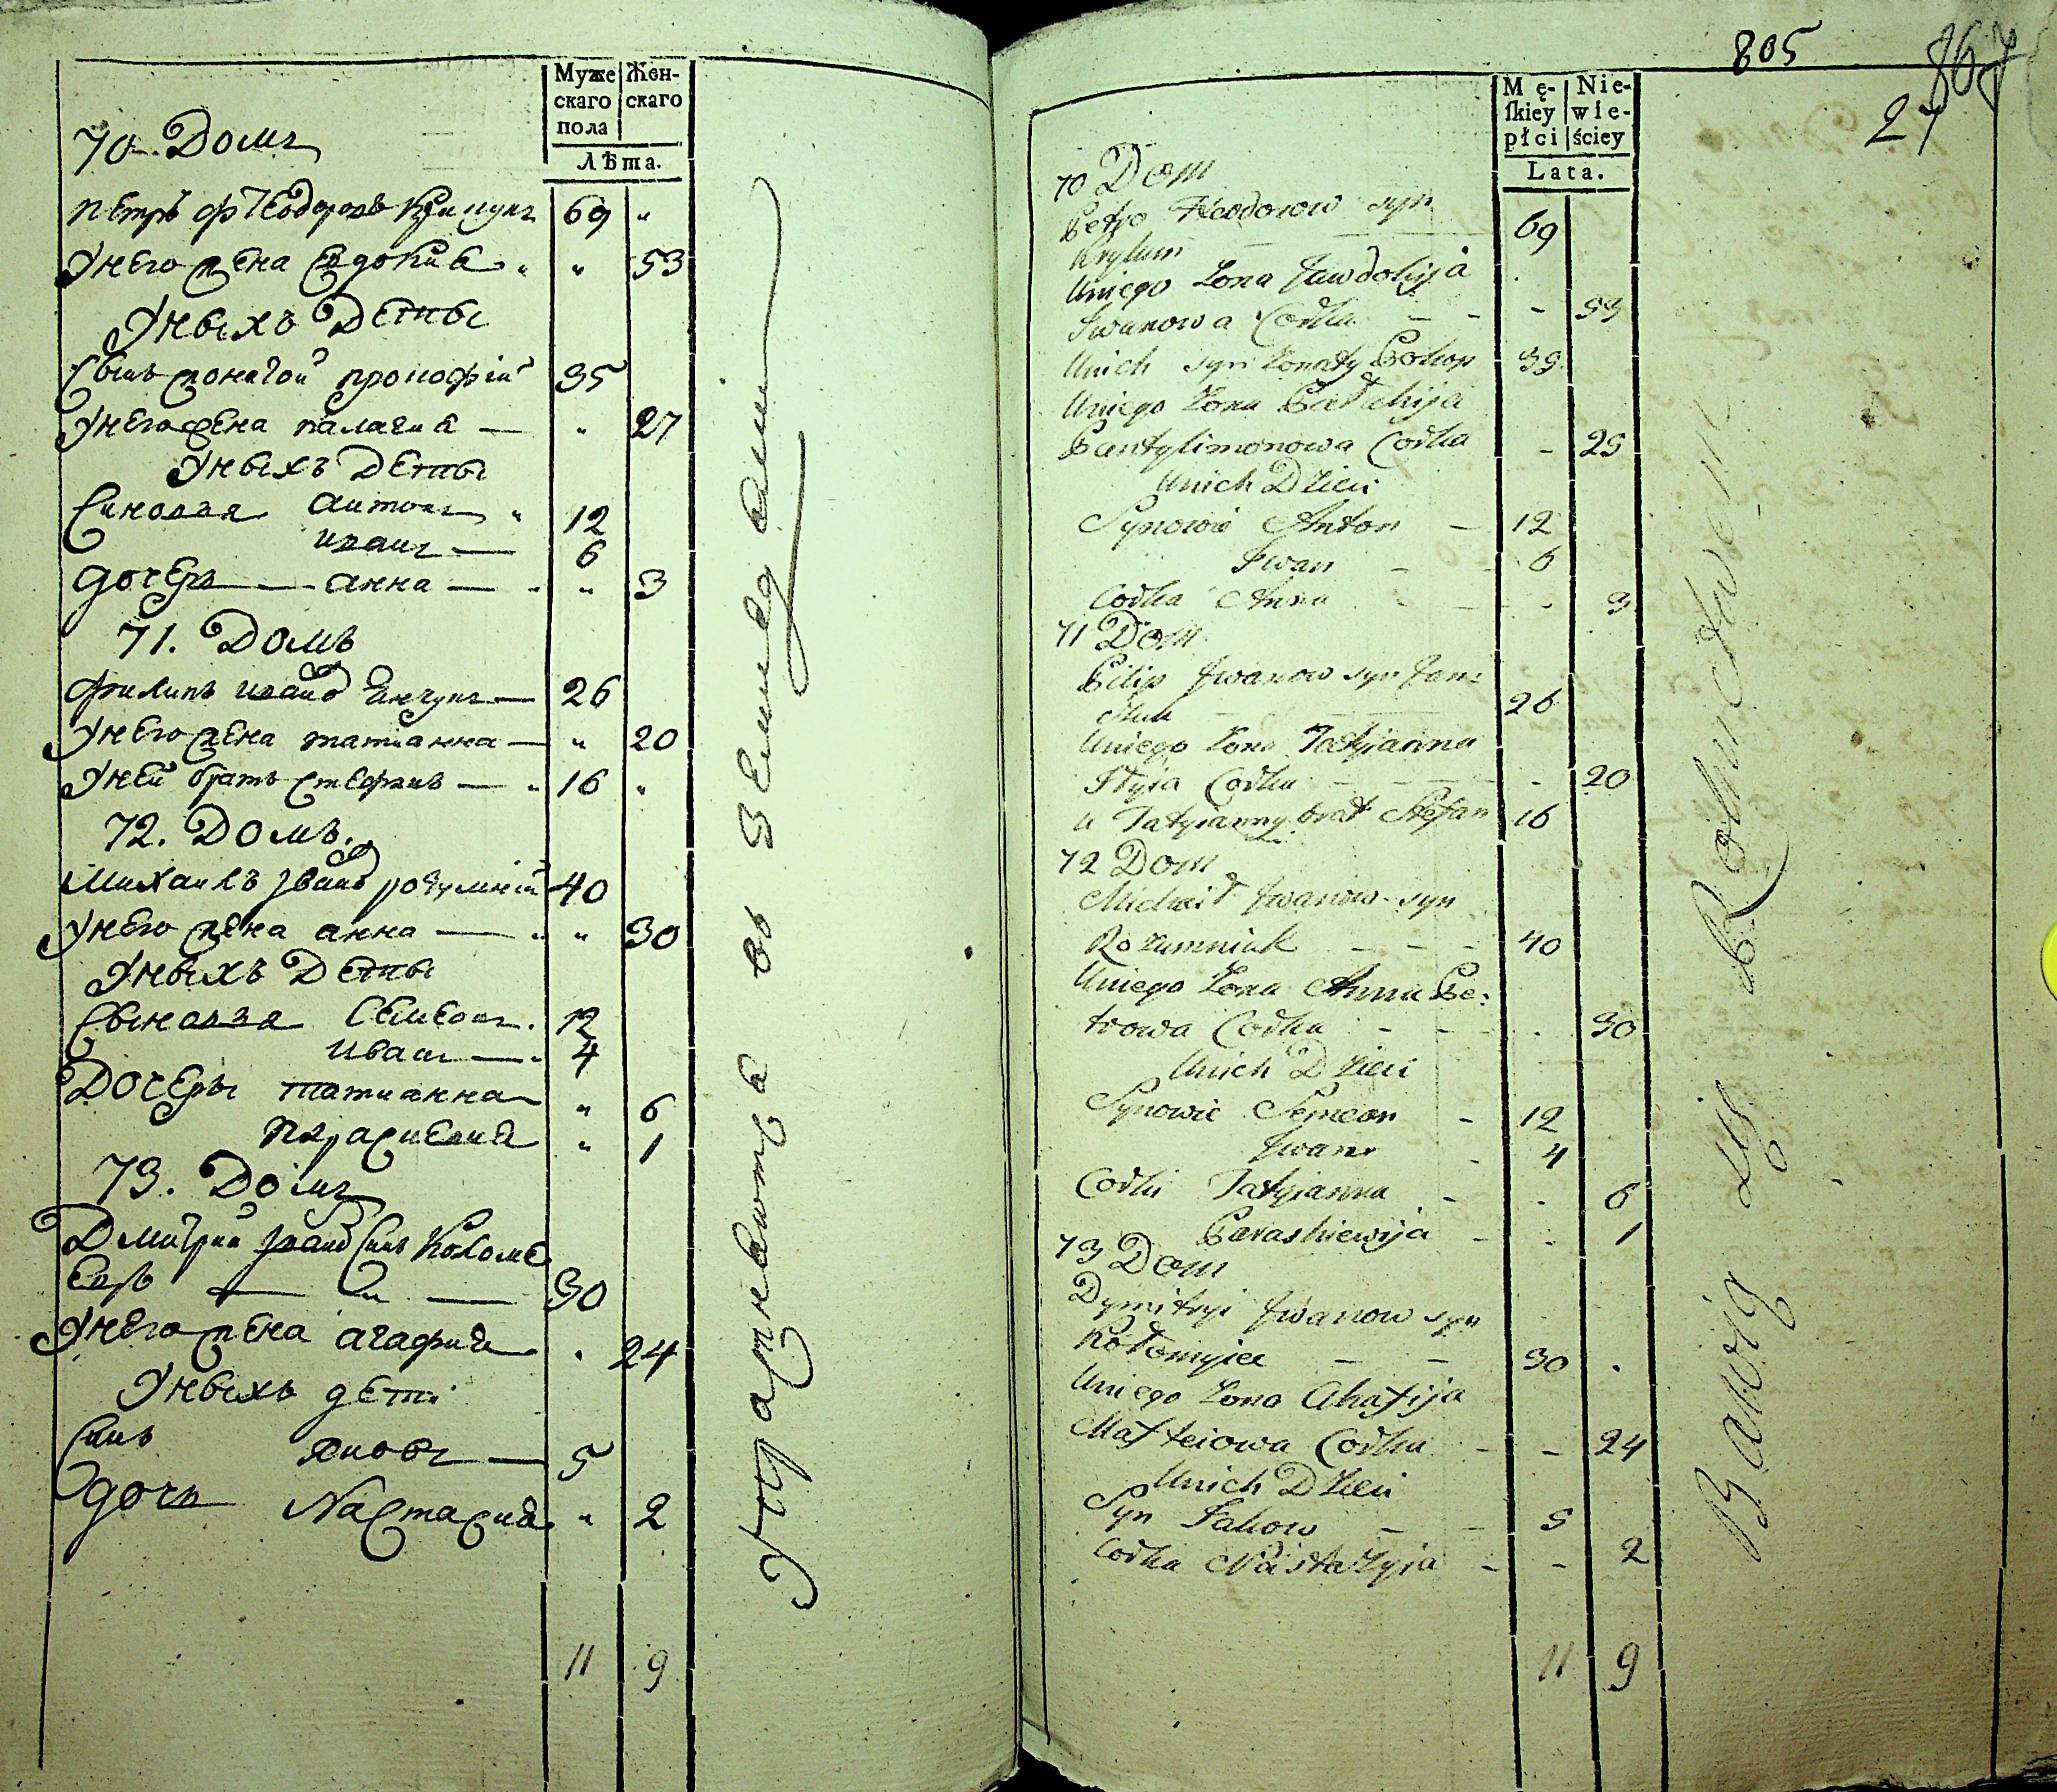 Муже
скаго
пола
Жен-
скаго
Лѣта.
70. Домъ
Петръ Ѳеодоровъ 69 "
У него жена Евдокиа " " 53
У ныхъ Дѣты
Сынъ жонатой Прокофій 35
У него жена Палагиа — " 27
У ныхъ Дѣты
Синовья Антонъ " 12
Иванъ — 6
дочерь — анна — " " 3
71. Домъ
Филипъ Иванов — 26
У него жена татианна — " 20
У ней братъ Стефанъ — " 16 "
72. Домъ.
Михаилъ Иванов розумній 40
У него жена анна — " " 30
У ныхъ Дѣты
Сыновья Семеонъ. 12
Иванъ — 4
Дочеры татианна " 6
Параскевия " 1
73. Домъ
Дмитрий Иванов Синъ Коломе
ецъ — " — 30
У него жена агафия . 24
У ныхъ дети
Синъ Яковъ — 5
дочь Настасия " 2
11 9
въ земледелии
805
867
27
Mę-
ſkiey
płci
Nie-
wie-
ściey
Lata.
70 Dom
Petro Fteodorow syn
Krykun — — 69
Uniego Żona Jawdokija .
Iwanowa Corka - - - 53
Unich syn Żonaty Prokop 35
Uniego Żona Pałahija
Pantylimonowa Corka - 25
Unich Dzieci
Synowie Anton — 12
Iwan - - 6
Corka Anna - - - 3
71 Dom
Pilip Iwanow syn Jan:
czuk 26
Uniego Żona Tatyianna
Iłyia Corka - - - - - 20
u Tatyianny brat Stefan 16
72 Dom
Michaił Iwanow syn
Rozumniak - - - 40
Uniego Żona Anna Pe:
trowa Corka - - . 30
Unich Dzieci
Synowie Semeon - 12
Iwan - 4
Corki Tatyianna - . 6
Paraskiewija - . 1
73 Dom
Dymitryi Iwanow syn
Kołomyiec — - 30 .
Uniego Żona Ahafija
Matfeiowa Corka - - 24
Unich Dzieci
Syn Jakow - - 5
Corka Nastazyia - - 2
11 9
Bawią się Rolnictwem